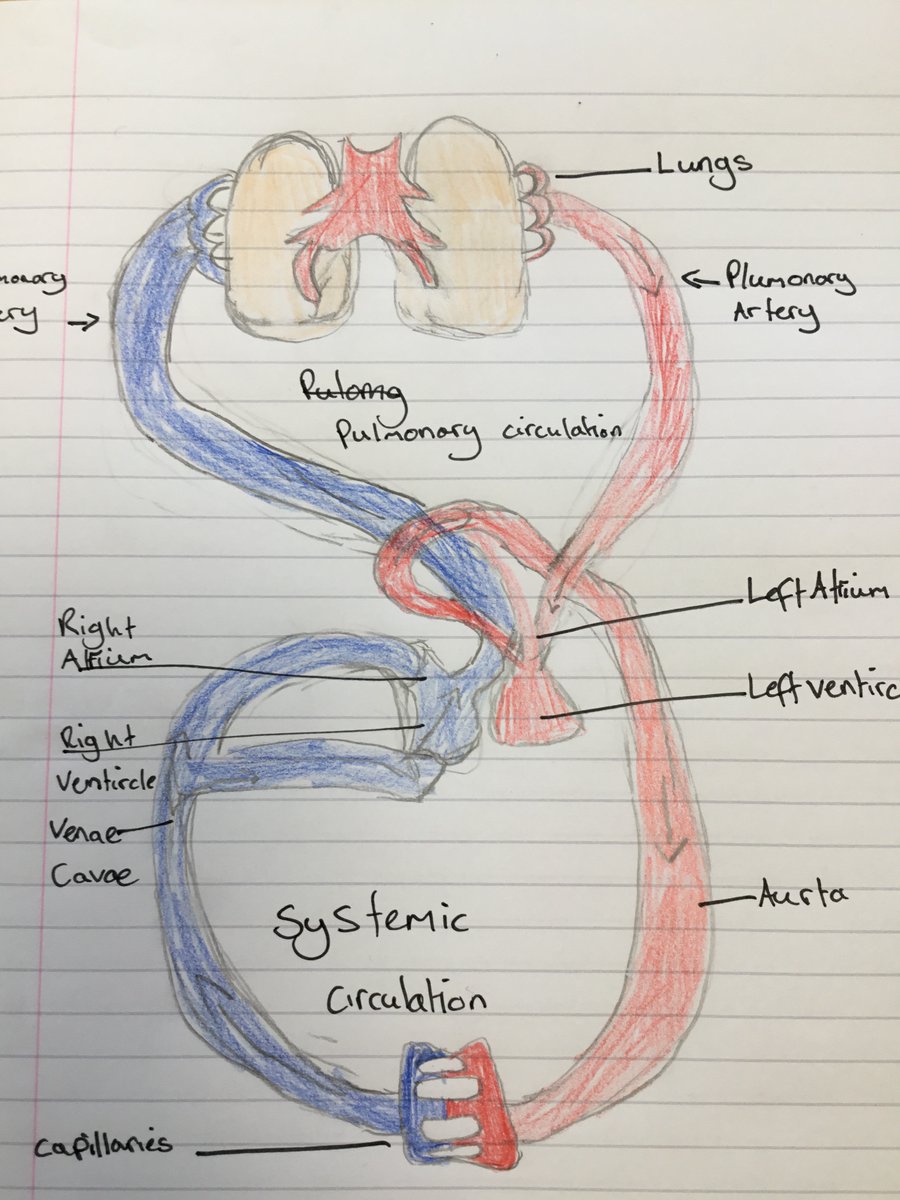 Lungs
monary
ery
Plumonary
Artery
Pulmonary circulation
Left Atrium
Right
Atrium
Left ventirc
Right
Ventircle
Venae
Cavae
Aurta
Systemic
Circulation
Capillaries